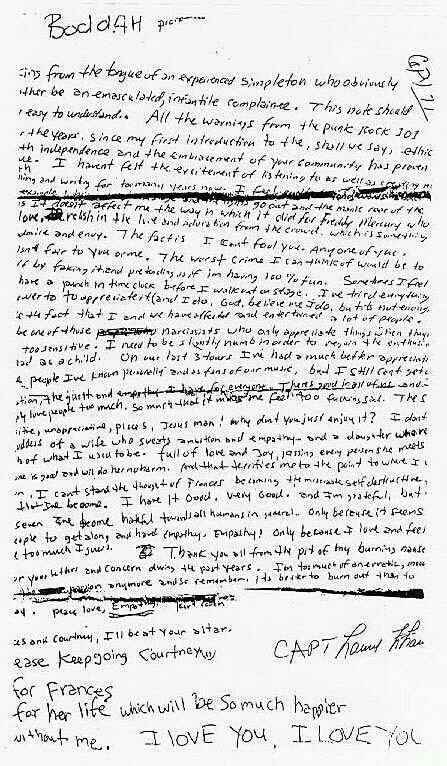 BoddAH
Cpl/71
ing from the tongue of an experienced simpleton who obviously
ther be an emasculated, infantile complainee. This note should
easy to understand. All the warnings from the punk rock 101
the years. since my first introduction to the, shall we say, ethic
th independence and the embracement of your community has proven
ue. I havent felt the excitement of listening to as well as creating
ning and writing for too many years now. I feel
go out and the manic roar of the
is It doesnt affect me the way in which it did for Freddy Mercury who
love, relish in the love and adoration from the crowd. which is something
dmire and envy. The fact is I cant fool you. Any one of you.
isnt fair to you or me. The worst crime I can think of would be to
ff by faking it and pretending as if im having 100% fun. Sometimes I feel
have a punch in time clock before I walk out on stage. I've tried everything
ower to appreciate it (and I do. God, believe me I do, but it's not enough.
the fact that I and we have affected and entertained a lot of people.
be one of those narcissists who only appreciate things when they
too sensitive. I need to be slightly numb in order to regain the enthusia
had as a child. On our last 3 tours I've had a much better appreciati
people I've known personally and as fans of our music, but I still cant get o
tion, the guilt and empathy I have for everyone. Theres good in all of us and
ply love people too much. So much that it makes me feel too fucking sad. The s
itive, unappreciative, pisces, Jesus man! why dont you just enjoy it? I dont
oddess of a wife who sweats ambition and empathy and a daughter who re
h of what I used to be. full of love and Joy, kissing every person she meets
one is good and will do her no harm. And that terrifies me to the point to where I c
n. I cant stand the thought of Frances becoming the miserable self destructive,
that Ive become. I have it Good. Very Good. and Im grateful, but
seven Ive become hateful towards all humans in general. Only because it seems
eople to get along and have empathy. Empathy! Only because I love and feel
e too much I guess. Thank you all from the pit of my burning nause
or your letters and concern during the past years. I'm too much of an erratic, moo
passion anymore and so remember, its better to burn out than to
peace love, Empathy. Kurt Cobain
es and Courtney, I'll be at your altar.
ease Keep going Courtney,
CAPT
for Frances
for her life which will be so much happier
without me. I LOVE YOU. I LOVE YOU